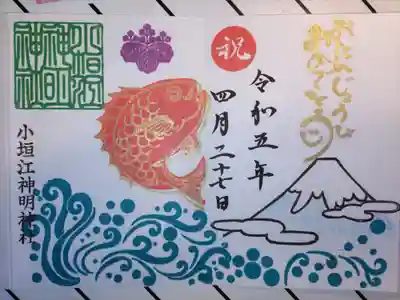 おたんじょうび
おめでとう
令和五年
四月二十七日
祝
小垣江
神明
神社
小垣江神明神社